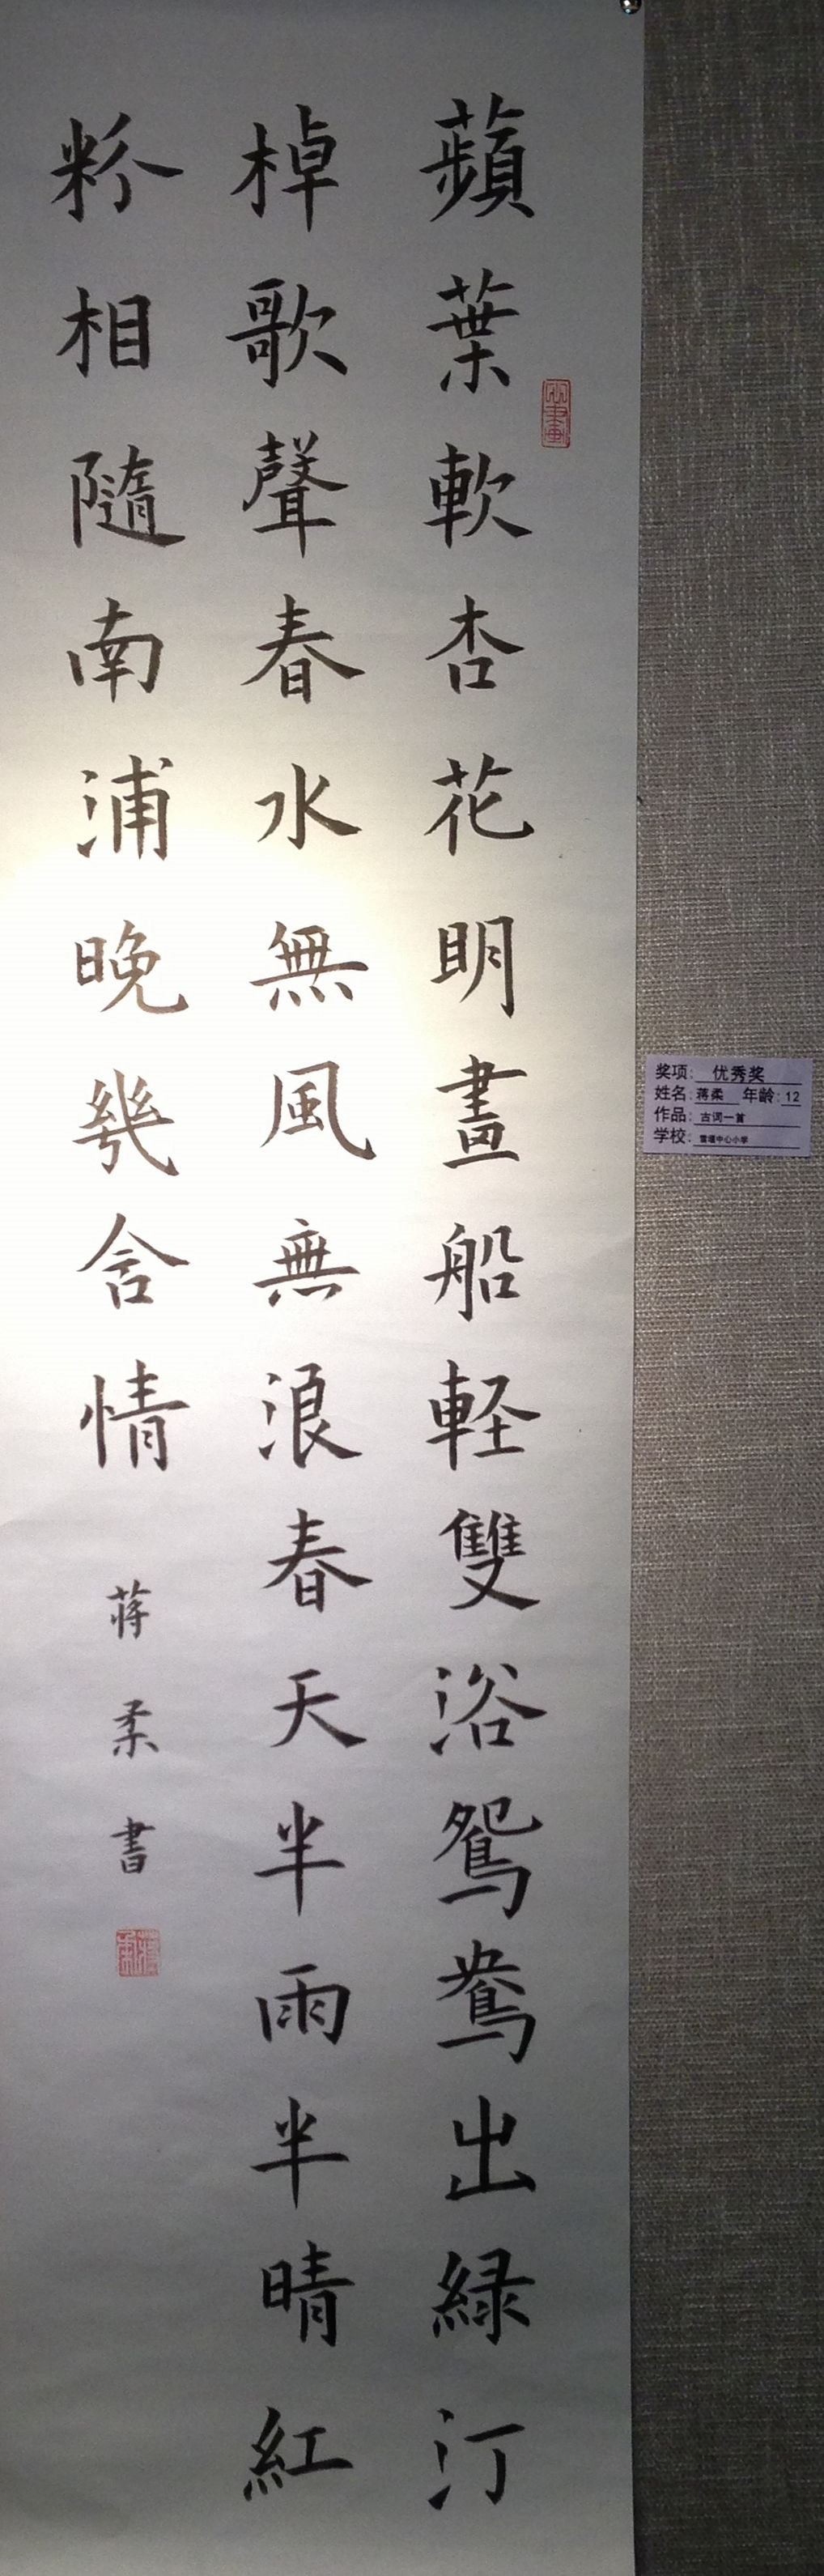 蘋葉軟杏花明畫船軽雙浴鴛鴦出緑汀
棹歌聲春水無風無浪春天半雨半晴紅
粉相隨南浦晚幾含情
蒋柔書
奖项: 优秀奖
姓名: 蒋柔 年龄: 12
作品: 古词一首
学校: 雪堰中心小学